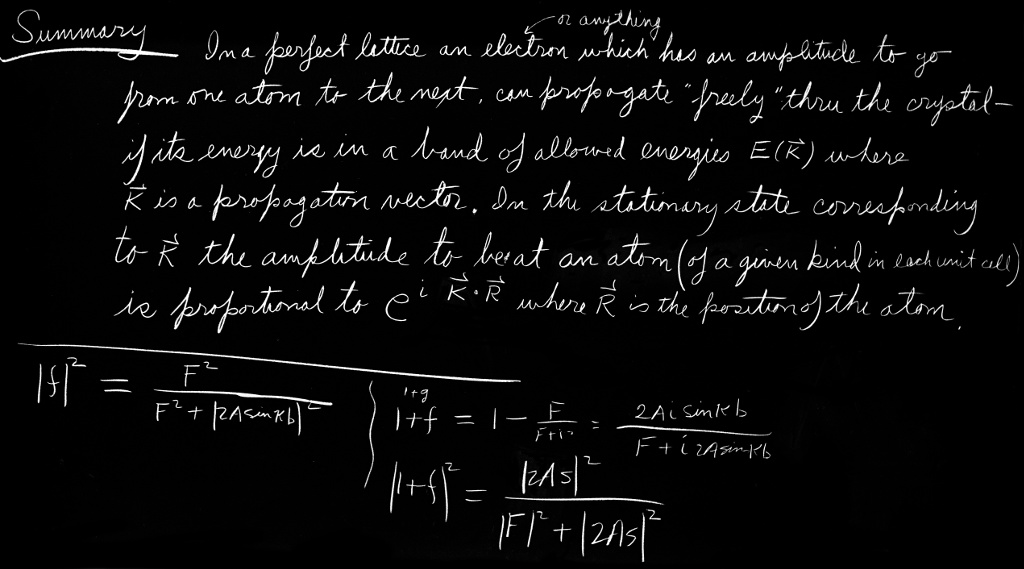 Summary
or anything
In a perfect lattice an electron which has an amplitude to go
from one atom to the next, can propagate "freely" thru the crystal—
if its energy is in a band of allowed energies E(K⃗) where
K⃗ is a propagation vector. In the stationary state corresponding
to K⃗ the amplitude to be at an atom (of a given kind in each unit cell)
is proportional to e^{i K⃗·R⃗} where R⃗ is the position of the atom.
|f|² = F² / (F² + |2A sin Kb|²)
1+g
1+f = 1 − F / (F+i··) = 2Ai sin Kb / (F + i 2A sin Kb)
|1+f|² = |2As|² / (|F|² + |2As|²)